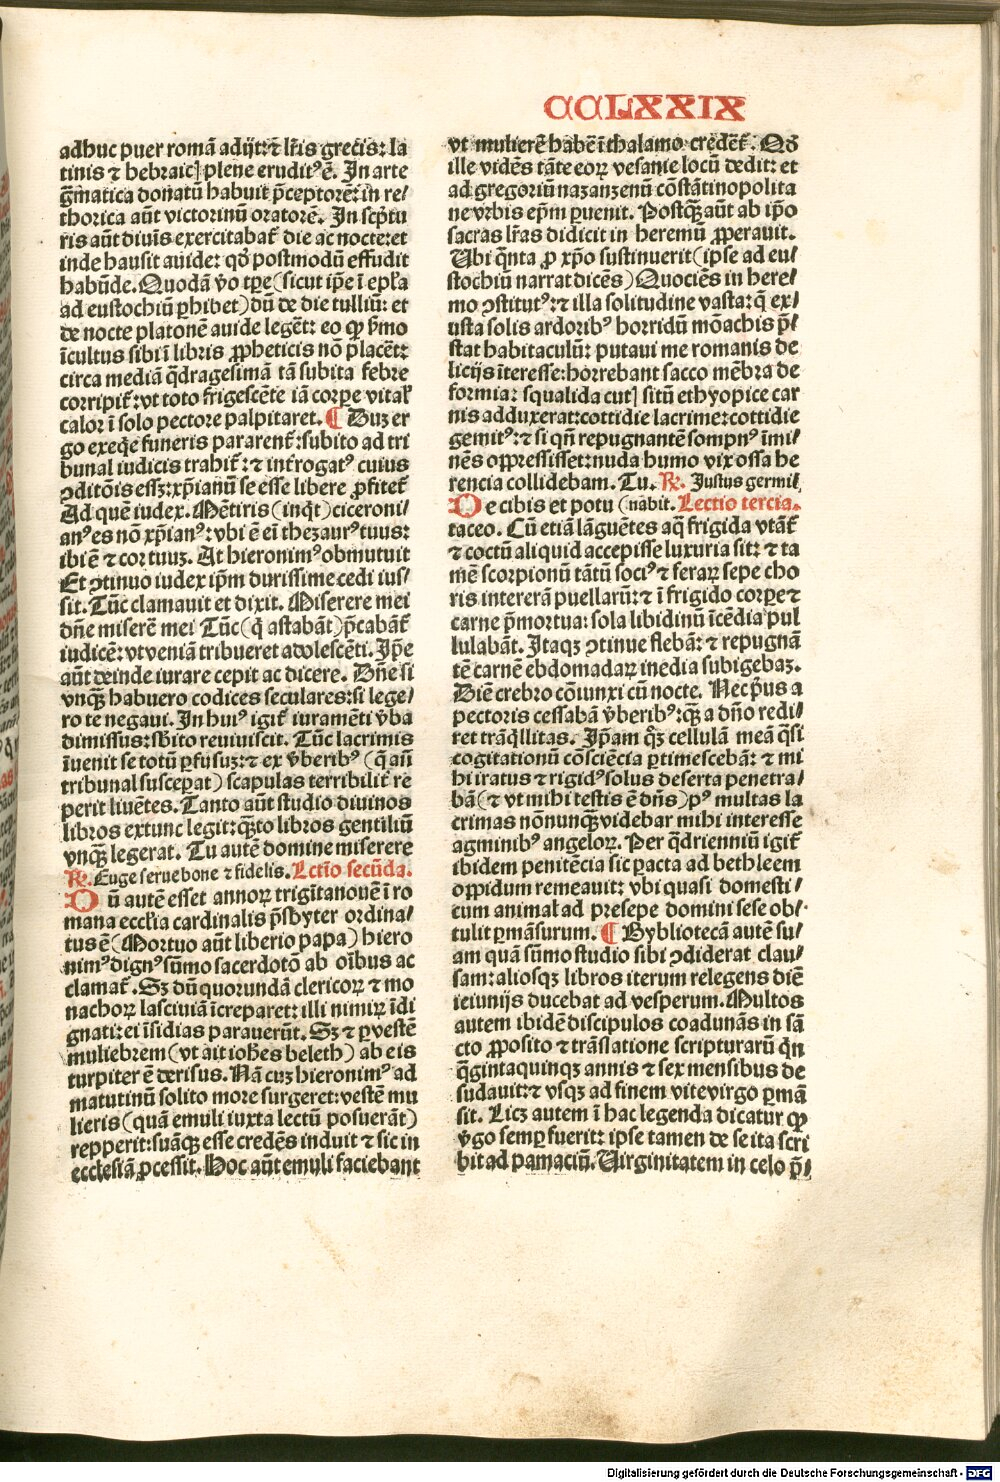 CCLXXIX
adhuc puer romā adijt: ⁊ lr̄is grecis: la
tinis ⁊ hebraicꝭ plene eruditꝰ ē. In arte
gr̄matica donatū habuit p̄ceptorē: in re/
thorica aūt victorinū oratorē. In scpt̄u
ris aūt diuīs exercitabat̄ die ac nocte: et
inde hausit auide: qō postmodū effudit
habūde. Quodā v̄o tꝑe (sicut ip̄e ī epl̄a
ad eustochiū ꝓhibet) dū de die tulliū: et
de nocte platonē auide legēt: eo ꝙ ẜmo
īcultus sibi ī libris ꝓpheticis nō placēt:
circa mediā q̄dragesimā tā subita febre
corripit̄: vt toto frigescēte iā corꝑe vital̄
calor ī solo pectore palpitaret. ¶ Duz er
go exeq̄e funeris pararent̄: subito ad tri
bunal iudicis trahit̄: ⁊ int̄rogatꝰ cuius
ꝯditōis essꝫ: xp̄ianū se esse libere ꝓfitet̄
Ad quē iudex. Mētiris (inq̄t) ciceroni/
anꝰ es nō xp̄ianꝰ: vbi ē eī thezaurꝰ tuus:
ibi ē ⁊ cor tuuꝫ. At hieronimꝰ obmutuit
Et ꝯtinuo iudex ip̄m durissime cedi ius/
sit. Tūc clamauit et dixit. Miserere mei
dn̄e miserē mei Tūc (q̄ astabāt) p̄cabāt̄
iudicē: vt veniā tribueret adolescēti. Ip̄e
aūt deinde iurare cepit ac dicere. Dn̄e si
vnqꝫ habuero codices seculares: si lege/
ro te negaui. In huiꝰ igit̄ iuramēti v̄ba
dimissus: sb̄ito reuiuiscit. Tūc lacrimis
īuenit se totū ꝑfusuꝫ: ⁊ ex v̄beribꝰ (q̄ aū
tribunal susceꝑat) scapulas terribilit̄ re
perit liuētes. Tanto aūt studio diuinos
libros extunc legit: qꝫto libros gentiliū
vnqꝫ legerat. Tu autē domine miserere
℟. Euge serue bone ⁊ fidelis. Lectio secūda.
Dū autē esset annoꝝ trigītanoue ī ro
mana eccl̄ia cardinalis p̄sbyter ordina/
tus ē (Mortuo aūt liberio papa) hiero
nimꝰ dignꝰ sūmo sacerdotō ab oībus ac
clamat̄. Sꝫ dū quorundā clericoꝝ ⁊ mo
nachoꝝ lasciuiā īcreparet: illi nimiꝝ īdi
gnati: ei īsidias parauerūt. Sꝫ ⁊ ꝑ vestē
muliebrem (vt ait ioh̄es beleth) ab eis
turpiter ē derisus. Nā cuꝫ hieronimꝰ ad
matutinū solito more surgeret: vestē mu
lieris (quā emuli iuxta lectū posuerāt)
repperit: suāqꝫ esse credēs induit ⁊ sic in
ecclesiā ꝓcessit. Hoc aūt emuli faciebant
vt mulierē habē ī thalamo credēt̄. Qō
ille vidēs tāte eoꝝ vesanie locū dedit: et
ad gregoriū nazanzenū cōstātinopolita
ne vrbis ep̄m ꝑuenit. Postqꝫ aūt ab ip̄o
sacras lr̄as didicit in heremū ꝓperauit.
Ubi q̄nta ꝓ xp̄o sustinuerit (ipse ad eu/
stochiū narrat dicēs) Quociēs in here/
mo ꝯstitutꝰ: ⁊ illa solitudine vasta: q̄ ex/
usta solis ardoribꝰ horridū mōachis p̄/
stat habitaculū: putaui me romanis de
licijs īteresse: horrebant sacco mēbra de
formia: squalida cutꝭ sitū ethyopice car
nis adduxerat: cottidie lacrime: cottidie
gemitꝰ: ⁊ si qn̄ repugnantē sompnꝰ īmi/
nēs oppressisset: nuda humo vix ossa he
rencia collidebam. Tu. ℟. Justus germi/
De cibis et potu (nabit. Lectio tercia.
taceo. Cū etiā lāguētes aq̄ frigida vtāt̄
⁊ coctū aliquid accepisse luxuria sit: ⁊ ta
mē scorpionū tātū sociꝰ ⁊ feraꝝ sepe cho
ris intererā puellarū: ⁊ ī frigido corꝑe ⁊
carne p̄mortua: sola libidinū īcēdia pul
lulabāt. Itaqꝫ ꝯtinue flebā: ⁊ repugnā
tē carnē ebdomadaꝝ inedia subigebaꝫ.
Diē crebro cōiunxi cū nocte. Nec p̄us a
pectoris cessabā v̄beribꝰ: qꝫ a dn̄o redi/
ret trāq̄llitas. Ip̄am qꝫ cellulā meā q̄si
cogitationū cōsciēcia ꝑtimescebā: ⁊ mi
hi iratus ⁊ rigidꝰ solus deserta penetra/
bā (⁊ vt mihi testis ē dn̄s) pꝰ multas la
crimas nōnunqꝫ videbar mihi interesse
agminibꝰ angeloꝝ. Per q̄drienniū igit̄
ibidem penitēcia sic ꝑacta ad bethleem
oppidum remeauit: vbi quasi domesti/
cum animal ad presepe domini sese ob/
tulit ꝑmāsurum. ¶ Bybliotecā autē su/
am quā sūmo studio sibi ꝯdiderat clau/
sam: aliosqꝫ libros iterum relegens diē
ieiunijs ducebat ad vesperum. Multos
autem ibidē discipulos coadunās in sā
cto ꝓposito ⁊ trāslatione scripturarū q̄n
q̄gintaquinqꝫ annis ⁊ sex mensibus de
sudauit: ⁊ vsqꝫ ad finem vite virgo ꝑmā
sit. Licꝫ autem ī hac legenda dicatur ꝙ
v̄go semꝑ fuerit: ipse tamen de se ita scri
bit ad pamaciū. Uirginitatem in celo p̄/
Digitalisierung gefördert durch die Deutsche Forschungsgemeinschaft - DFG